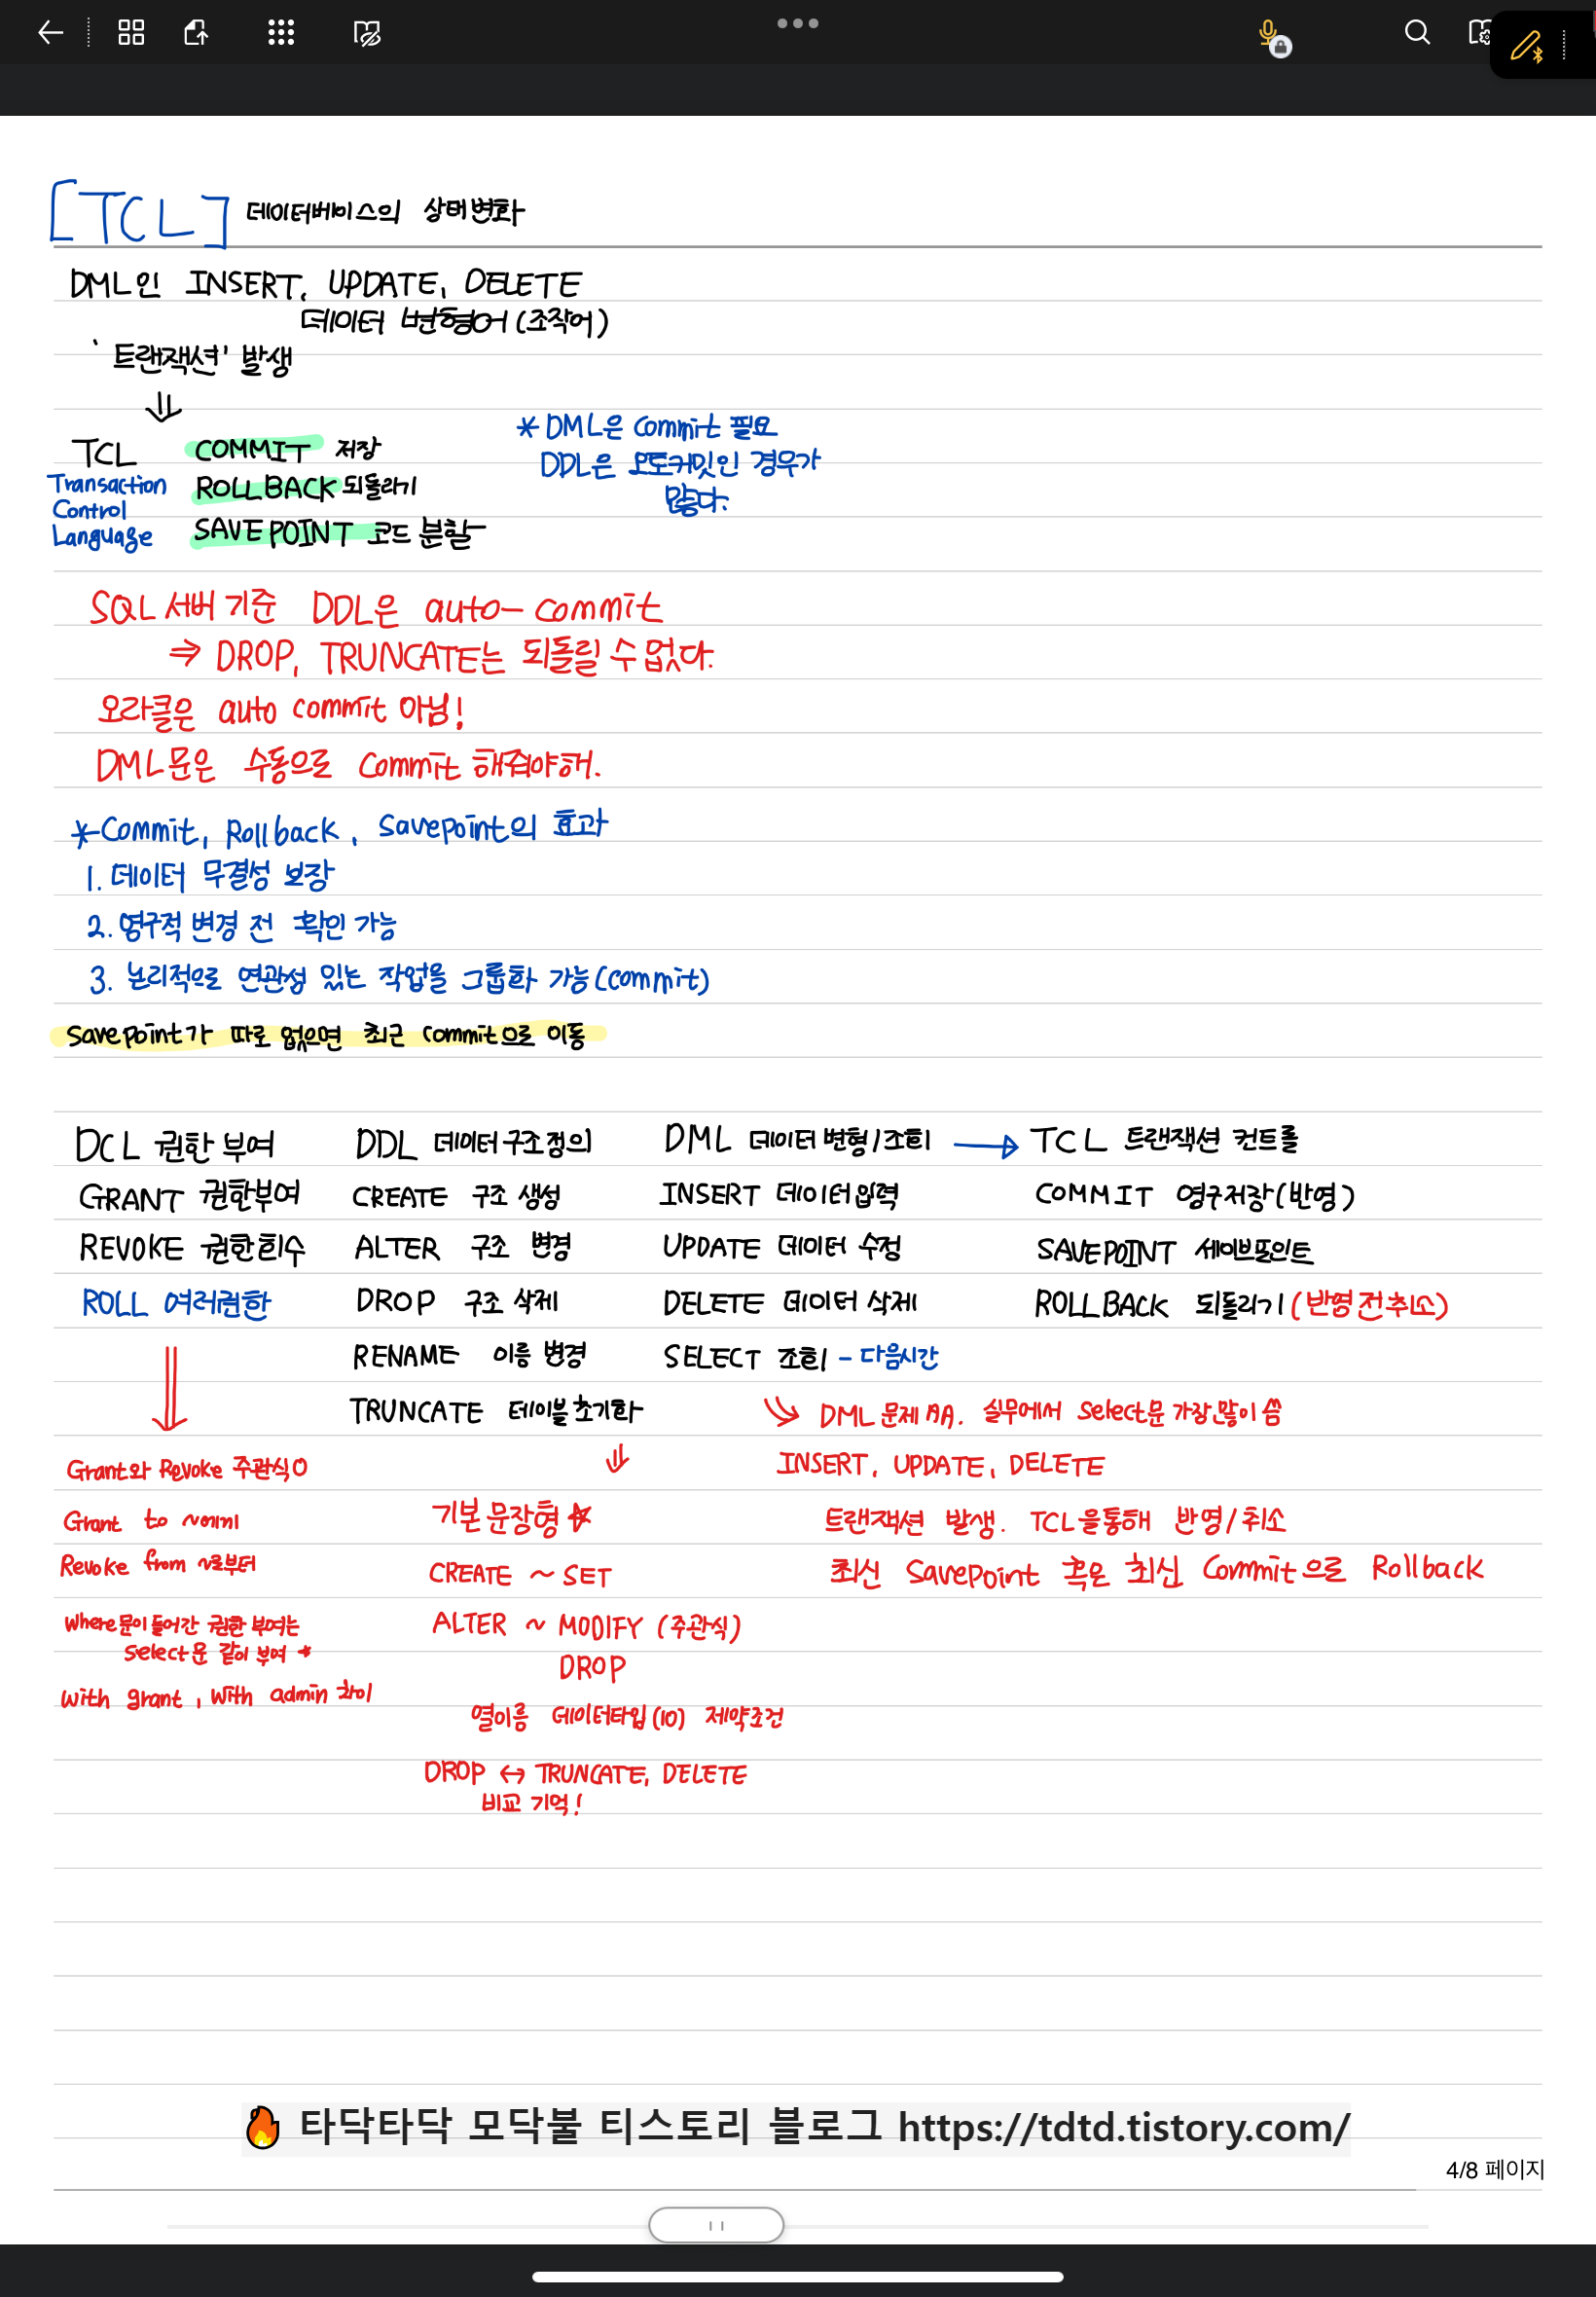 [TCL] 데이터베이스의 상태변화
DML인 INSERT, UPDATE, DELETE
데이터 변형어(조작어)
'트랜잭션' 발생
⇓
TCL COMMIT 저장
Transaction ROLLBACK 되돌리기
Control
Language SAVEPOINT 코드 분할
* DML은 commit 필요
DDL은 오토커밋인 경우가
많다.
SQL 서버 기준 DDL은 auto-commit
⇒ DROP, TRUNCATE는 되돌릴 수 없다.
오라클은 auto commit 아님!
DML문은 수동으로 commit 해줘야해.
* Commit, Rollback, Savepoint의 효과
1. 데이터 무결성 보장
2. 영구적 변경 전 확인 가능
3. 논리적으로 연관성 있는 작업을 그룹화 가능(commit)
Savepoint가 따로 없으면 최근 commit으로 이동
DCL 권한 부여 DDL 데이터 구조정의 DML 데이터 변형/조회 → TCL 트랜잭션 컨트롤
GRANT 권한부여 CREATE 구조 생성 INSERT 데이터 입력 COMMIT 영구저장(반영)
REVOKE 권한회수 ALTER 구조 변경 UPDATE 데이터 수정 SAVEPOINT 세이브포인트
ROLL 여러권한 DROP 구조 삭제 DELETE 데이터 삭제 ROLLBACK 되돌리기(반영 전 취소)
RENAME 이름 변경 SELECT 조회 - 다음시간
TRUNCATE 테이블 초기화
Grant와 Revoke 주관식 O
Grant to ~에게
Revoke from ~로부터
Where문이 들어간 권한 부여는
select문 같이 부여 *
with grant, with admin 차이
기본 문장형 ☆
CREATE ~ SET
ALTER ~ MODIFY (주관식)
DROP
열이름 데이터타입(10) 제약조건
DROP ↔ TRUNCATE, DELETE
비교 기억!
DML 문제 AA. 실무에서 select문 가장 많이 씀
INSERT, UPDATE, DELETE
트랜잭션 발생. TCL을 통해 반영/취소
최신 Savepoint 혹은 최신 Commit으로 Rollback
🔥 타닥타닥 모닥불 티스토리 블로그 https://tdtd.tistory.com/
4/8 페이지